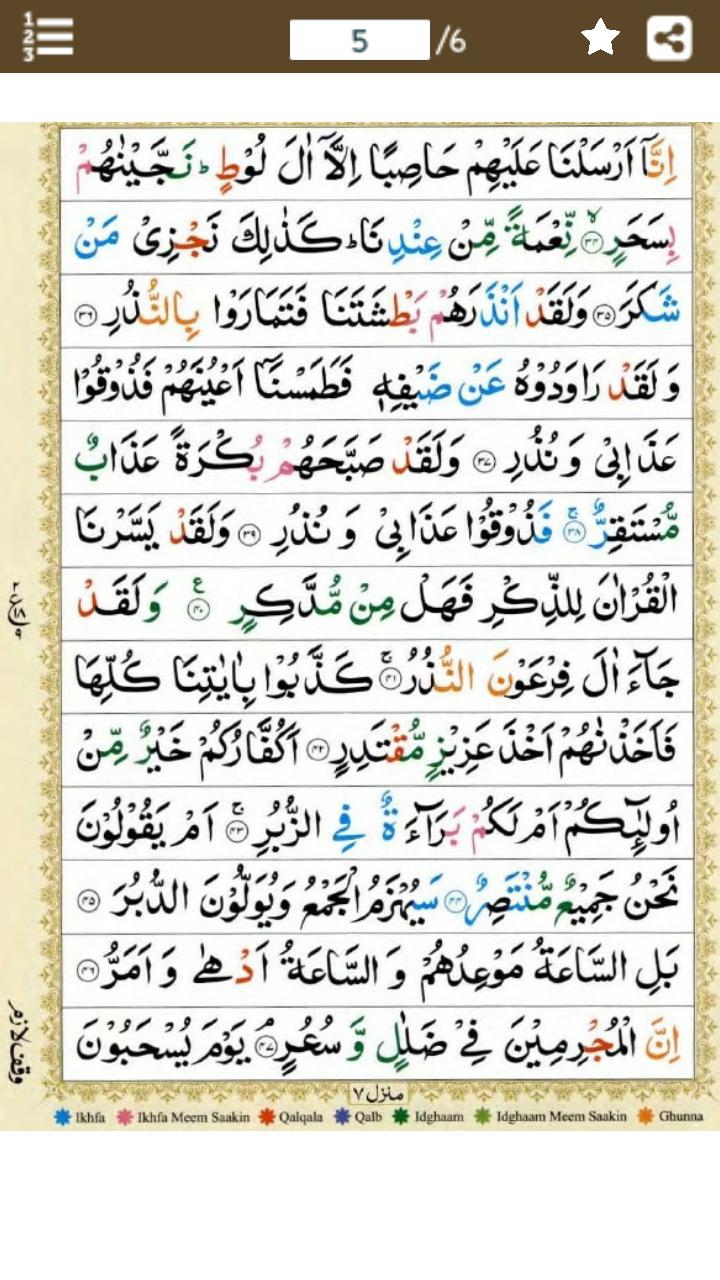 1
2
3
5 /6
اِنَّاۤ اَرْسَلْنَا عَلَيْهِمْ حَاصِبًا اِلَّاۤ اٰلَ لُوْطٍ ؕ نَجَّيْنٰهُمْ
بِسَحَرٍ ۙ﴿۳۴﴾ نِّعْمَةً مِّنْ عِنْدِنَا ؕ كَذٰلِكَ نَجْزِىْ مَنْ
شَكَرَ ﴿۳۵﴾ وَلَقَدْ اَنْذَرَهُمْ بَطْشَتَنَا فَتَمَارَوْا بِالنُّذُرِ ﴿۳۶﴾
وَلَقَدْ رَاوَدُوْهُ عَنْ ضَيْفِهٖ فَطَمَسْنَاۤ اَعْيُنَهُمْ فَذُوْقُوْا
عَذَابِىْ وَنُذُرِ ﴿۳۷﴾ وَلَقَدْ صَبَّحَهُمْ بُكْرَةً عَذَابٌ
مُّسْتَقِرٌّ ۚ﴿۳۸﴾ فَذُوْقُوْا عَذَابِىْ وَنُذُرِ ﴿۳۹﴾ وَلَقَدْ يَسَّرْنَا
الْقُرْاٰنَ لِلذِّكْرِ فَهَلْ مِنْ مُّدَّكِرٍ ﴿۴۰﴾ ع وَلَقَدْ
جَآءَ اٰلَ فِرْعَوْنَ النُّذُرُ ۚ﴿۴۱﴾ كَذَّبُوْا بِاٰيٰتِنَا كُلِّهَا
فَاَخَذْنٰهُمْ اَخْذَ عَزِيْزٍ مُّقْتَدِرٍ ﴿۴۲﴾ اَكُفَّارُكُمْ خَيْرٌ مِّنْ
اُولٰٓئِكُمْ اَمْ لَكُمْ بَرَآءَةٌ فِى الزُّبُرِ ۚ﴿۴۳﴾ اَمْ يَقُوْلُوْنَ
نَحْنُ جَمِيْعٌ مُّنْتَصِرٌ ﴿۴۴﴾ سَيُهْزَمُ الْجَمْعُ وَيُوَلُّوْنَ الدُّبُرَ ﴿۴۵﴾
بَلِ السَّاعَةُ مَوْعِدُهُمْ وَالسَّاعَةُ اَدْهٰى وَاَمَرُّ ﴿۴۶﴾
اِنَّ الْمُجْرِمِيْنَ فِىْ ضَلٰلٍ وَّسُعُرٍ ۘ﴿۴۷﴾ يَوْمَ يُسْحَبُوْنَ
وقف لازم
منزل ۷
Ikhfa Ikhfa Meem Saakin Qalqala Qalb Idghaam Idghaam Meem Saakin Ghunna